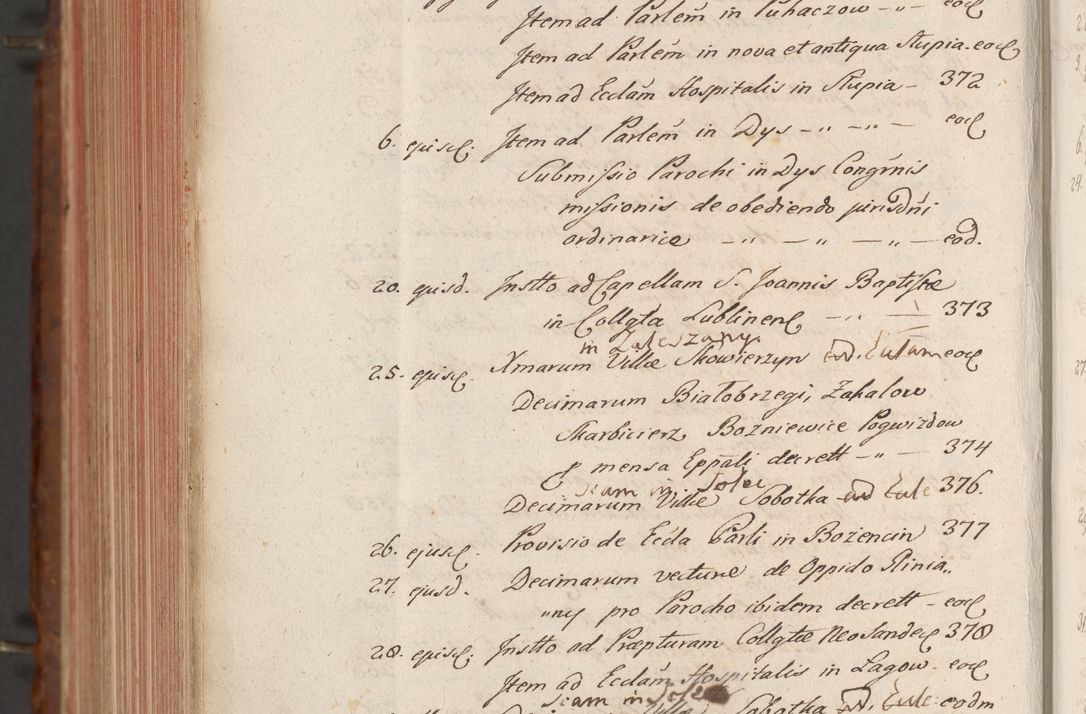 Item ad Parlem in Puhaczow -"- eod
Item ad Parlem in nova et antiqua Slupia - eod
Item ad Ecclam Hospitalis in Slupia - 372
6. ejusd. Item ad Parlem in Dys -"- -"- eod
Submissio Parochi in Dys Congrnis
missionis de obediendo jurisdni
ordinariæ -"- -"- -"- eod.
20. ejusd. Instto ad Capellam S. Joannis Baptistæ
in Collgta Lublinen -"- 373
in Zaleszany
25. ejusd. Xmarum Villæ Skowierzyn eod
Decimarum Białobrzegi, Zakalow
Skarbicierz Bozniewice Pogwizdow
p mensa Eppali decrett -"- 374
in Solec
Decimarum Villæ Sobotka ad 376.
26. ejusd. Provisio de Eccla Parli in Bozencin 377
27. ejusd. Decimarum vecturæ de Oppido Slinia"
"ny pro Parocho ibidem decrett - eod
28. ejusd. Instto ad Præpturam Collgtæ Neosandec 378
Item ad Ecclam Hospitalis in Lagow - eod
in Solec
Sobotka eodm